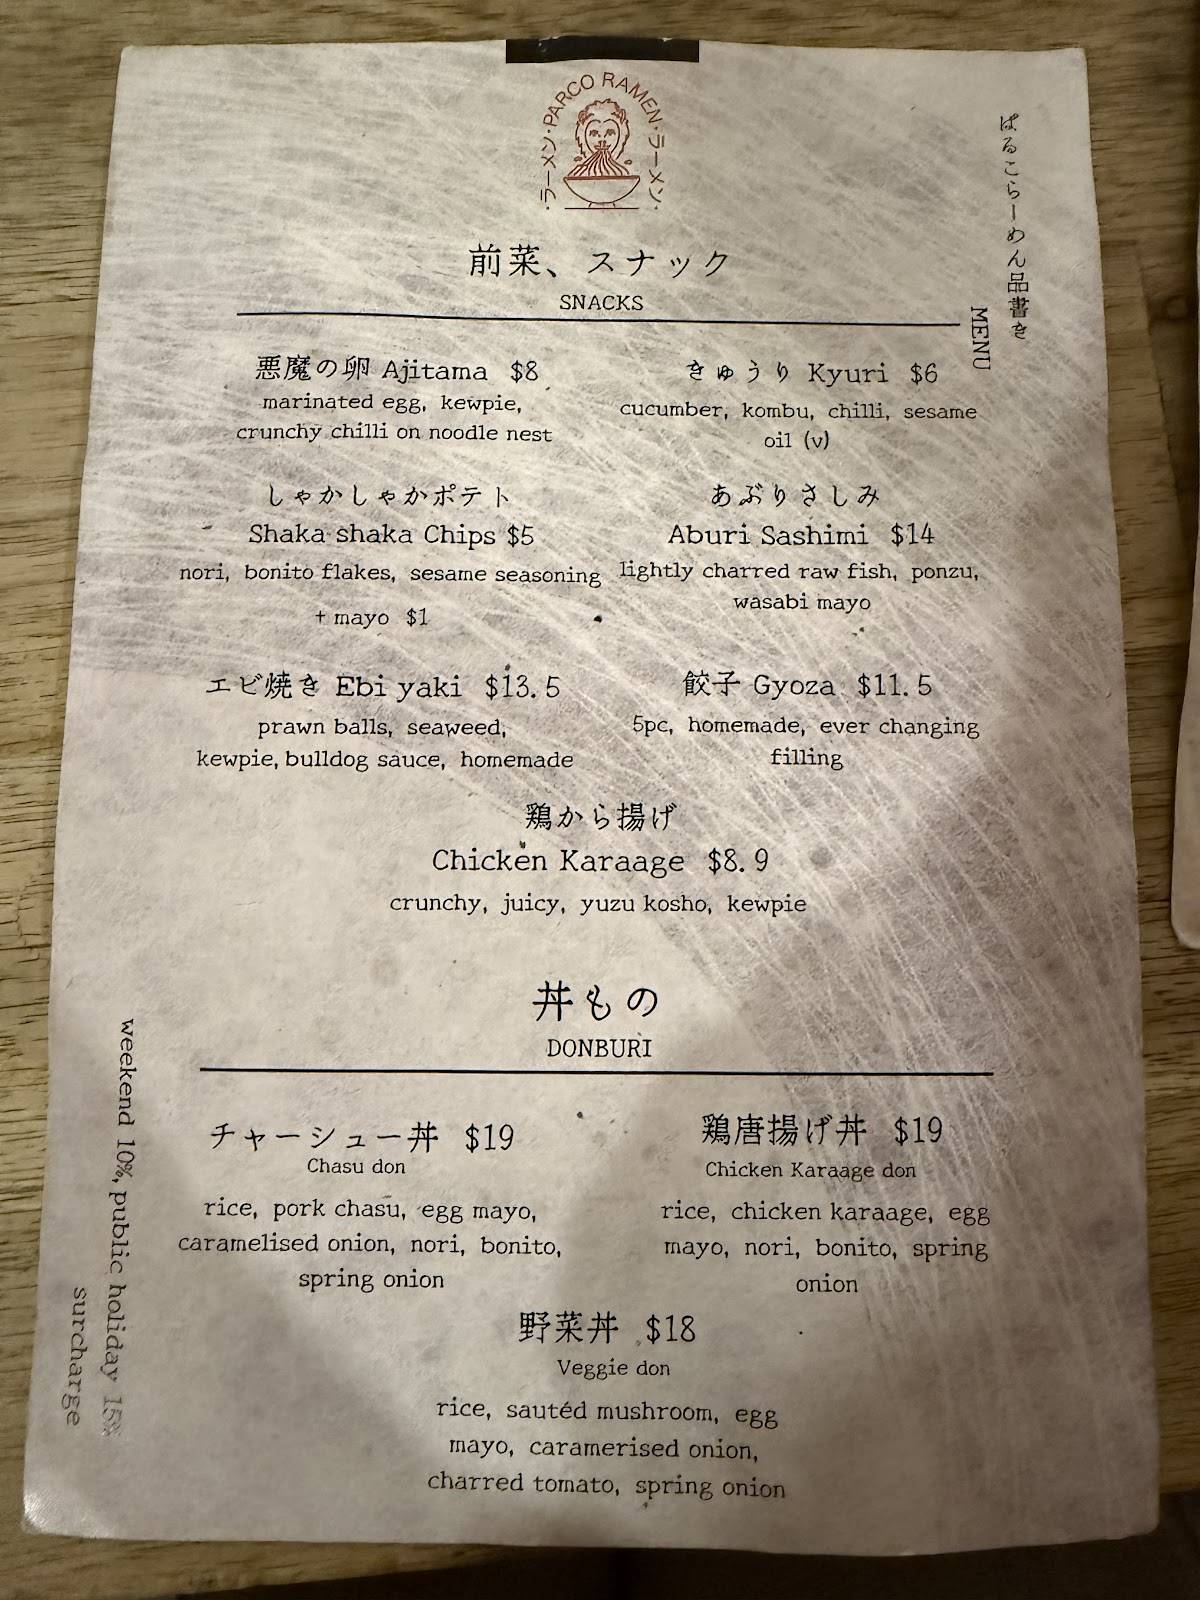 ・ラーメン・PARCO RAMEN・ラーメン・
ぱるこらーめん品書き
MENU
前菜、スナック
SNACKS
悪魔の卵 Ajitama $8
marinated egg, kewpie,
crunchy chilli on noodle nest
きゅうり Kyuri $6
cucumber, kombu, chilli, sesame
oil (v)
しゃかしゃかポテト
Shaka shaka Chips $5
nori, bonito flakes, sesame seasoning
+ mayo $1
あぶりさしみ
Aburi Sashimi $14
lightly charred raw fish, ponzu,
wasabi mayo
エビ焼き Ebi yaki $13.5
prawn balls, seaweed,
kewpie, bulldog sauce, homemade
餃子 Gyoza $11.5
5pc, homemade, ever changing
filling
鶏から揚げ
Chicken Karaage $8.9
crunchy, juicy, yuzu kosho, kewpie
丼もの
DONBURI
チャーシュー丼 $19
Chasu don
rice, pork chasu, egg mayo,
caramelised onion, nori, bonito,
spring onion
鶏唐揚げ丼 $19
Chicken Karaage don
rice, chicken karaage, egg
mayo, nori, bonito, spring
onion
野菜丼 $18
Veggie don
rice, sautéd mushroom, egg
mayo, caramerised onion,
charred tomato, spring onion
weekend 10%, public holiday 15%
surcharge